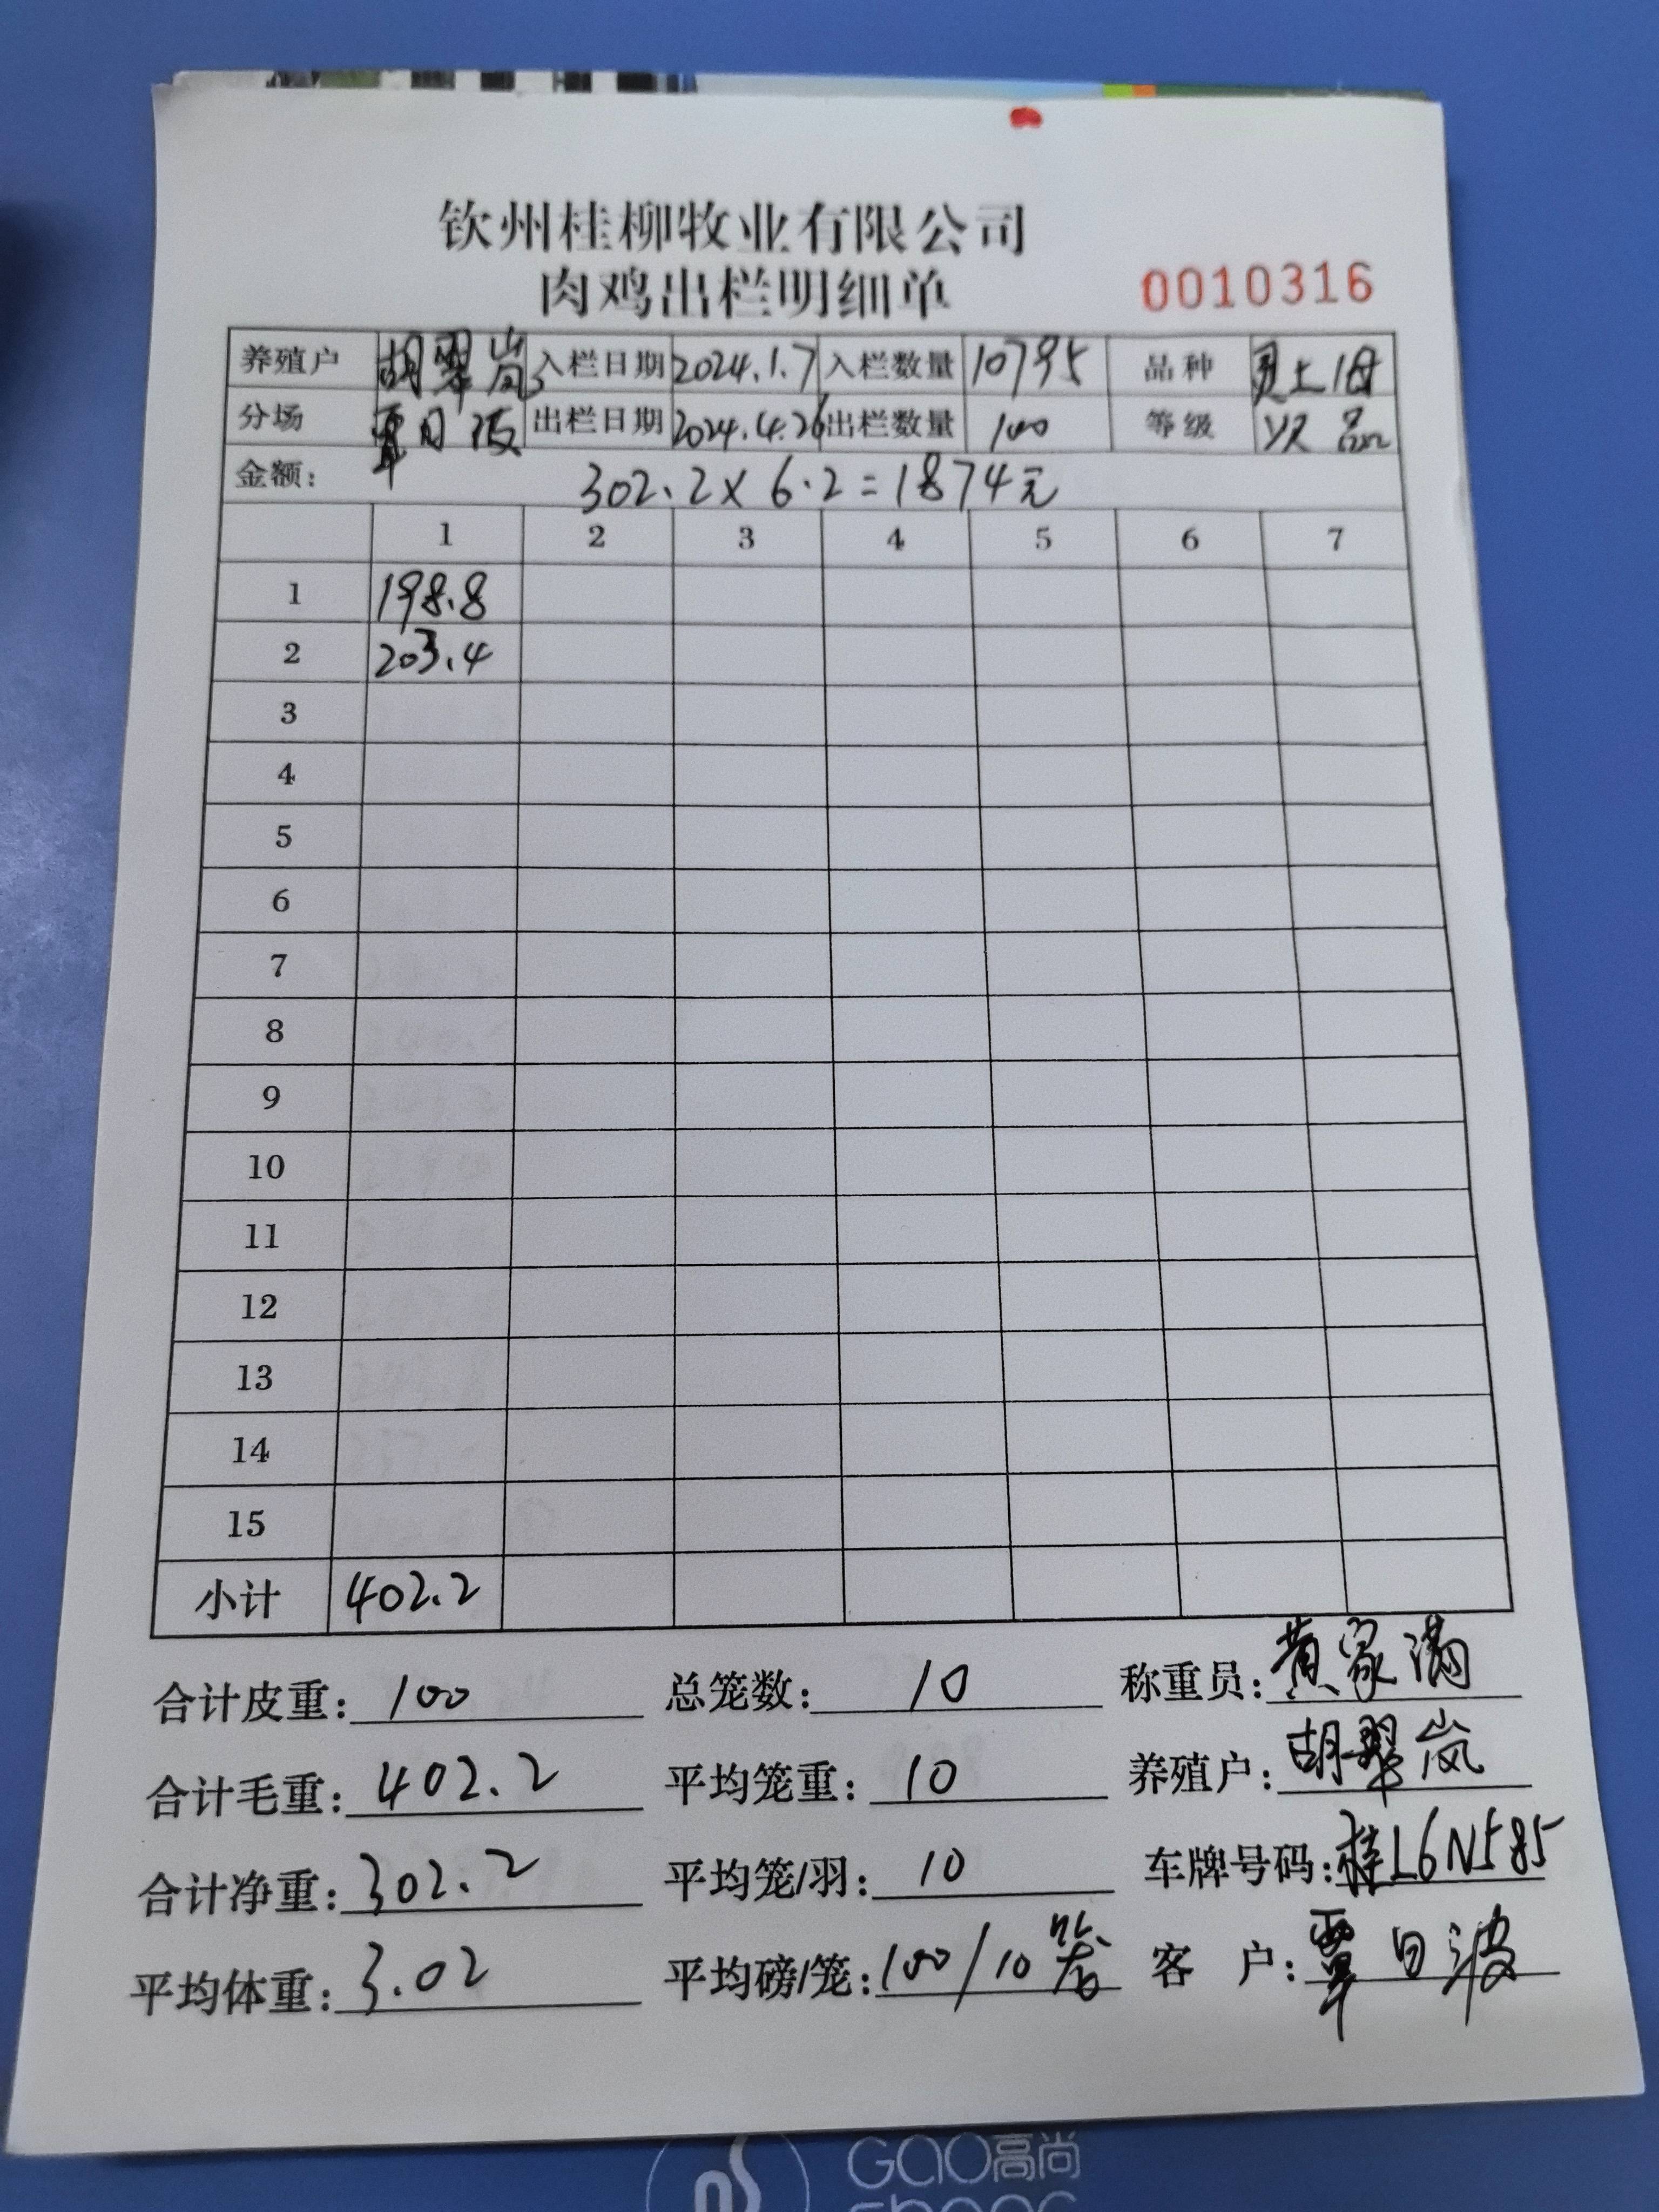 钦州桂柳牧业有限公司
肉鸡出栏明细单
0010316
养殖户 胡翠岚 入栏日期 2024.1.7 入栏数量 10795 品种 土1母
分场 覃日波 出栏日期 2024.4.26 出栏数量 100 等级 次品
金额： 302.2×6.2=1874元
1 2 3 4 5 6 7
1 198.8
2 203.4
3
4
5
6
7
8
9
10
11
12
13
14
15
小计 402.2
合计皮重：100 总笼数：10 称重员：黄家满
合计毛重：402.2 平均笼重：10 养殖户：胡翠岚
合计净重：302.2 平均笼/羽：10 车牌号码：桂L6N585
平均体重：3.02 平均磅/笼：100/10笼 客户：覃日波
GAO高尚